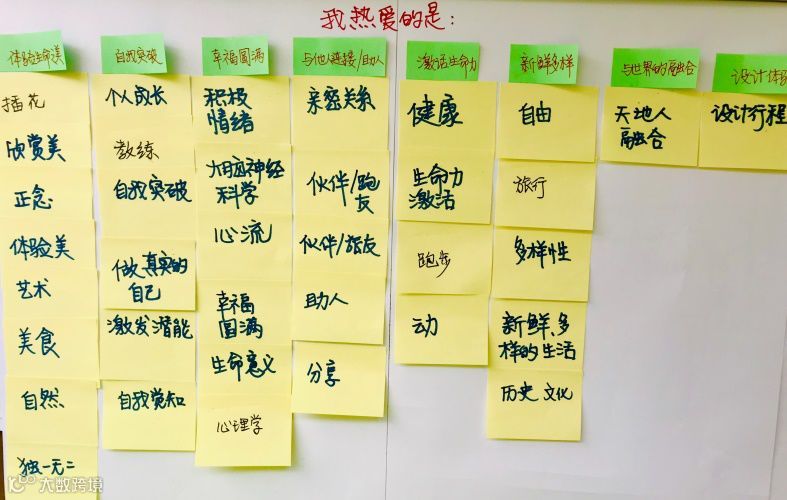 我热爱的是:
体验生命美
插花
欣赏美
正念
体验美
艺术
美食
自然
独一无二
自我突破
个人成长
教练
自我突破
做真实的
自己
激发潜能
自我觉知
幸福圆满
积极
情绪
大脑神经
科学
心流
幸福
圆满
生命意义
心理学
与他人连接/助人
亲密关系
伙伴/跑
友
伙伴/旅友
助人
分享
激活生命力
健康
生命力
激活
跑步
动
新鲜多样
自由
旅行
多样性
新鲜、多
样的生活
历史文化
与世界的融合
天地人
融合
设计体验
设计行程
大数跨境